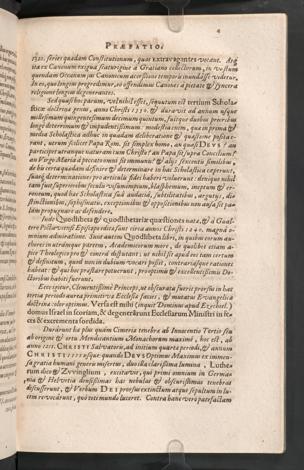 PRÆFATIO.
series quædam Constitutionum, quas extravagantes vocant. Atque
ita ex Canonum exigua scaturigine à Gratiano collectorum, in vastum
quendam Oceanum jus Canonicum accessione temporis inundasse videtur,
& eo, quo longius progredimur, eo offendimus Canones à pietate & syncera
religione longius degenerantes.
Sed quasi hoc parum, vel nihil esset, sequutum est tertium Schola-
sticæ doctrinæ genus, anno Christi & duravit ad annum usque
millesimum quingentesimum decimum quintum, suitque duobus prioribus
longè deterrimum & impudentissimum: modestia enim, quæ in prima &
media Scholastica adhuc in quadam deliberatione & quæstione posita e-
rat, utrum scilicet Papa Rom. sit simplex homo, an quasi DEUS? an
participet utramque naturam cum Christo? an Papa sit supra Concilium?
an Virgo Maria à peccato omni sit immunis? & aliæ ejusmodi similes,
de his certò quædam definire & determinare in hac Scholastica ceperunt,
suasq́ determinationes pro articulis fidei haberi voluerunt: deinde nihil
tam fuit Sophoribus sæculis
norum, quod hac Scholastica sub audacia, subtilitatibus, argutiis, di-
stinctionibus, sophismatis, exceptionibus & oppositionibus non ausa sit pa-
làm propugnare ac defendere.
Inde Quodlibetica & Quodlibetariæ quæstiones natæ, & à Gual-
tero Pictaviensi Episcopo edita sunt circa annos Christi 1240. magnâ o-
mnium admiratione. Sunt autem Quodlibeta libri, in quibus eorum au-
thores in utramque partem, Academicorum more, de quolibet etiam a-
pice Theologico pro & contrà disputant: ut nihil sit apud eos tam certum
& definitum, quod non in dubium vocari possit, contrariasque rationes
habeat: & qui hoc præstare potuerunt, pro optimis & excellentissimis Do-
ctoribus habiti fuerunt.
Ecce igitur, Clementissime Princeps, ut obscurata fuerit prorsus in hac
tertia periodo aurea primitivæ Ecclesiæ facies, & mutatus Evangelicæ
doctrinæ color optimus. Versa est mihi (inquit Dominus apud Ezechiel.)
domus Israel in scoriam, & degenerârunt Ecclesiarum Ministri in fe-
ces & excrementa sordida.
Durârunt hæ plus quàm Cimeriæ tenebræ ab Innocentio Tertio seu
ab origine & ortu Mendicantium Monachorum maximè, hoc est, ab
anno CHRISTI Salvatoris, ad initium quartæ periodi, & annum
CHRISTI usque: quando DEUS Optimus Maximus ex immen-
sa gratia humani generis misertus, duo illa clarissima lumina, Luthe-
rum dico & Zvvinglium, excitavit, qui primi omnium in Germa-
nia & Helvetia densissimas has nebulas & obscurissimas tenebras
discusserunt, & Verbum DEI prorsus extinctum atque sepultum in lu-
cem revocârunt, quò toti mundo luceret. Contra hanc verò patefactam